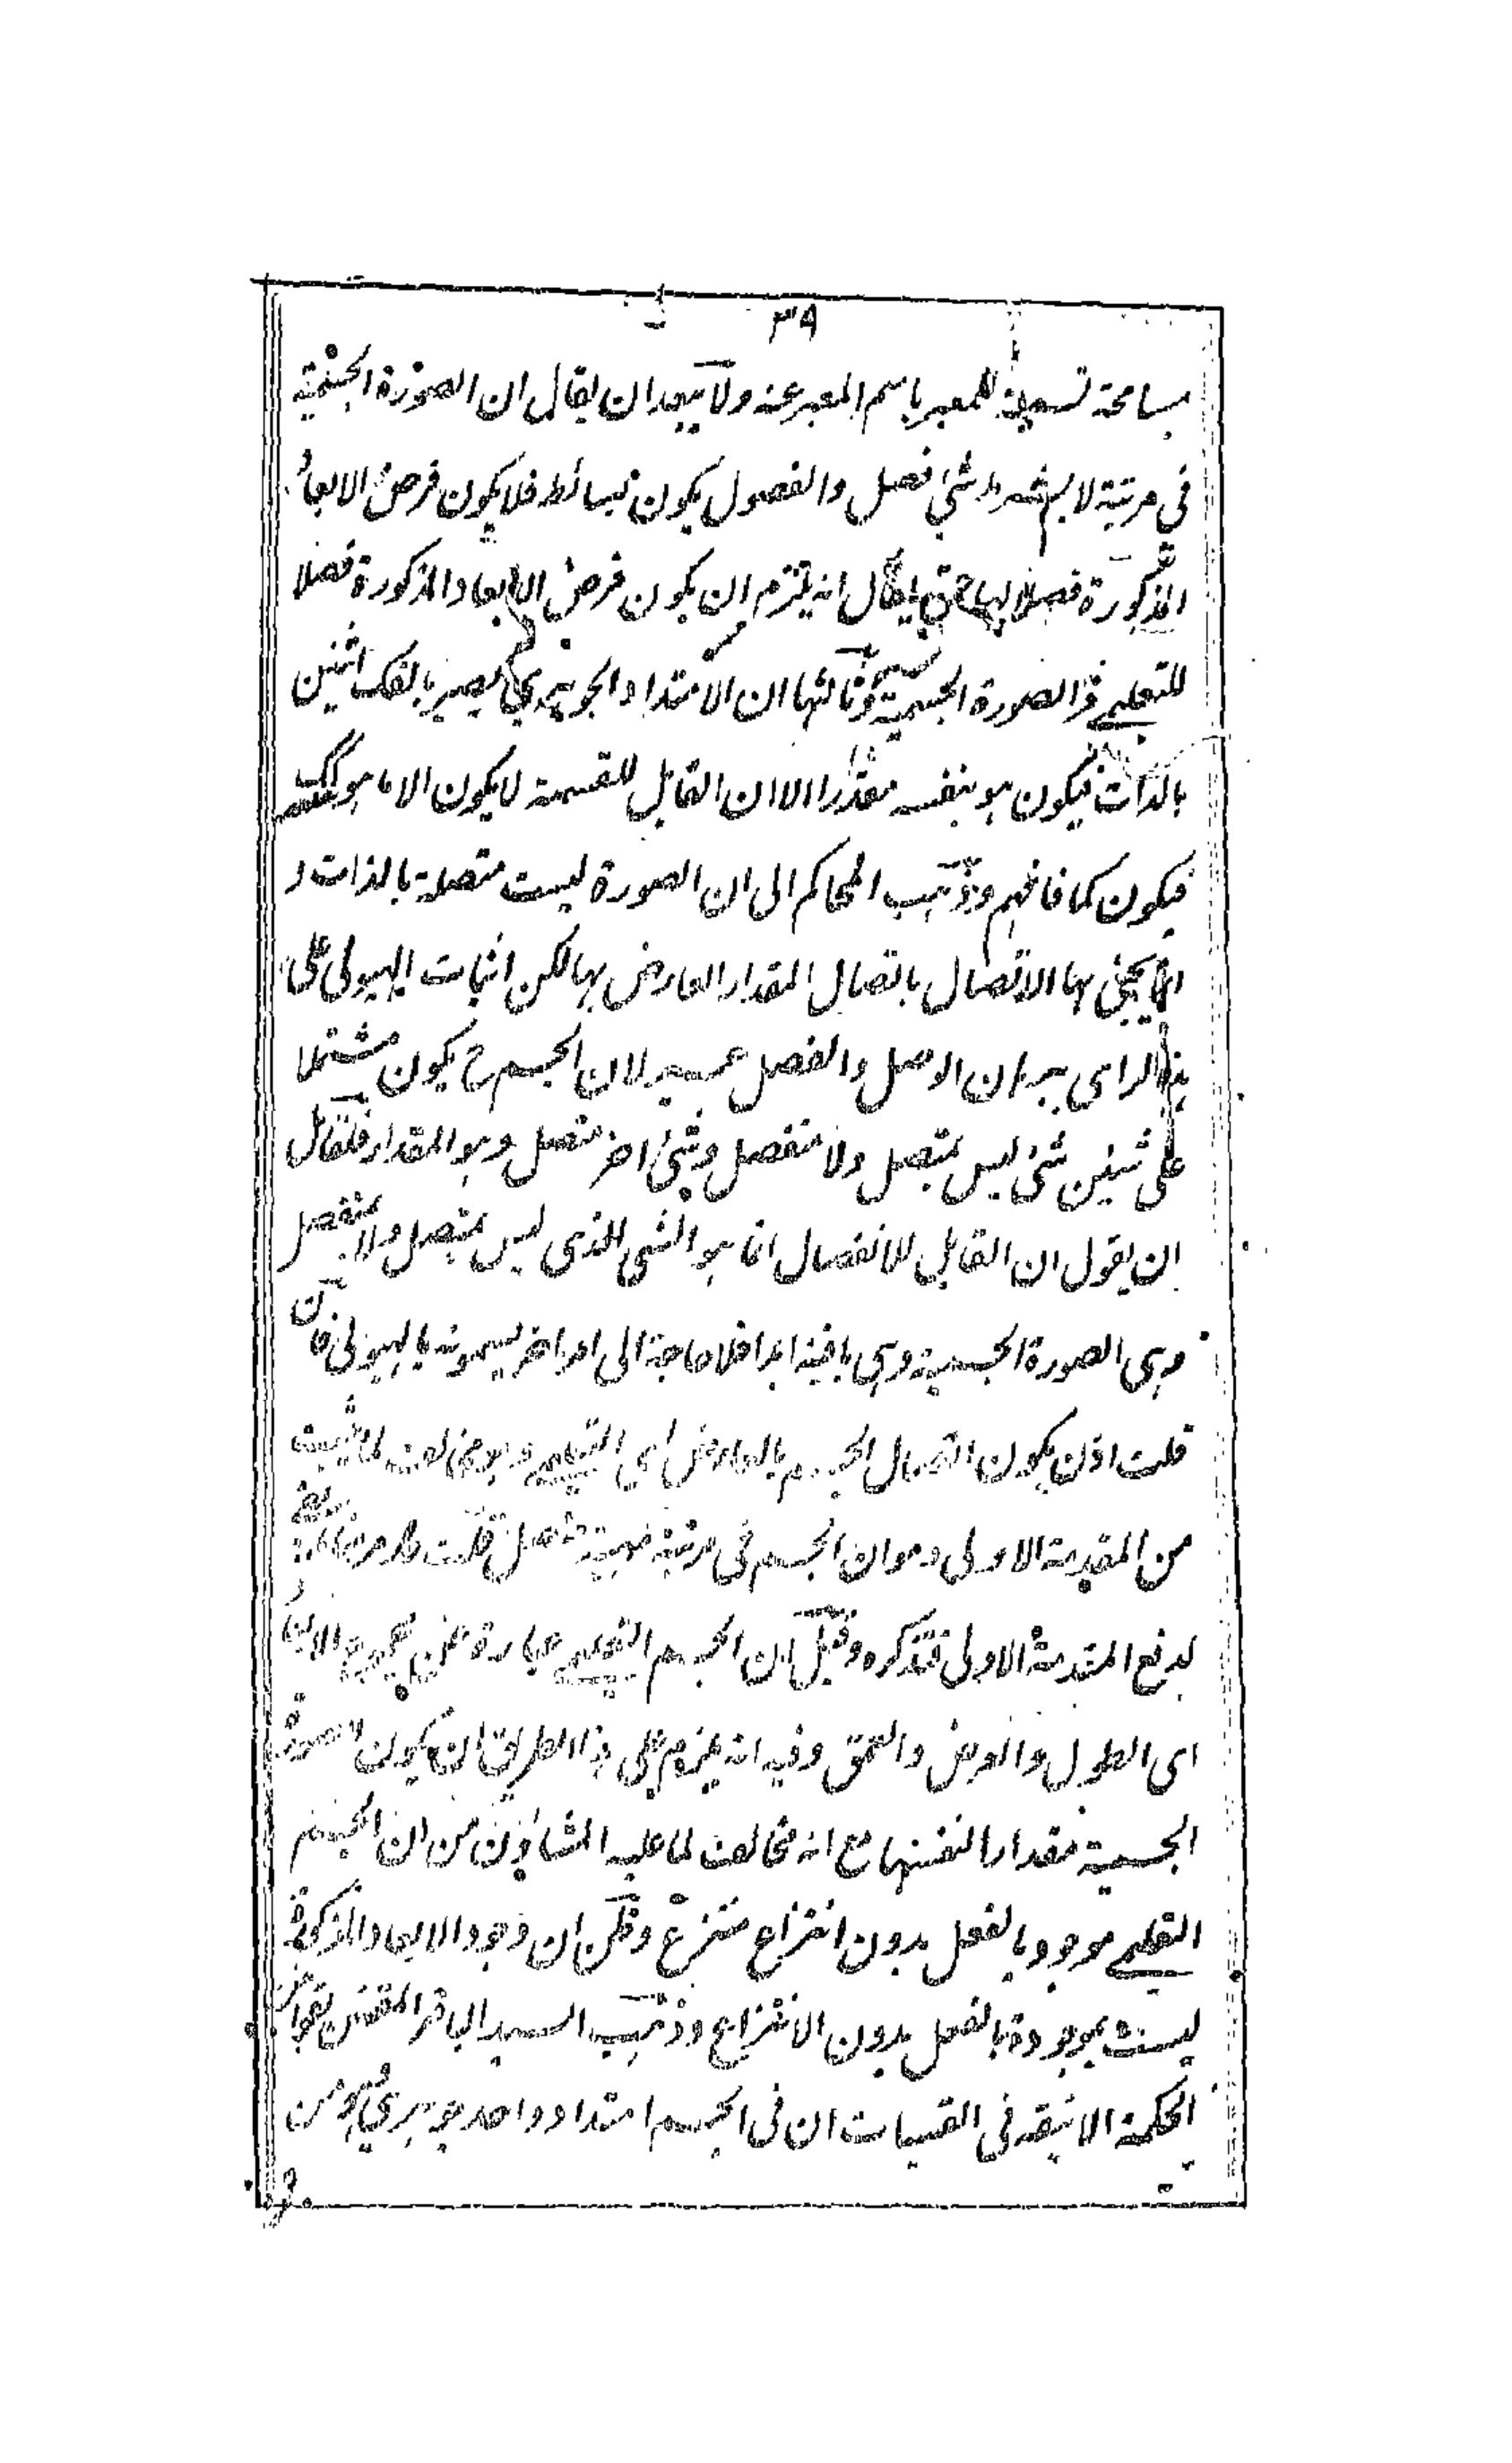 ٣٩
مسامحة تسمية للمعبر باسم المعبر عنه ولا يبعد ان يقال ان الصورة الجسمية
فى مرتبة لا بشرط شئ فصل والفصول يكون بسائط فلا يكون فرض الابعاد
المذكورة فصلا لها حتى يقال انه يلتزم ان يكون فرض الابعاد المذكورة فصلا
للتعليمے و الصورة الجسمية وثالثها ان الامتداد الجوهرى يصير بالفك اثنين
بالذات فيكون هو بنفسه مقدارا اذ لا ان القابل للقسمة لا يكون الا ما هو كك
فيكون كما فافهم وذهب المحاكم الى ان الصورة ليست متصلة بالذات و
انما يجئ لها الاتصال باتصال المقدار العارض بها لكن اثبات الهيولى على
هذا الراى ببرهان الوصل والفصل عسير لان الجسم ح يكون مشتملا
على شيئين شئ ليس بمتصل ولا منفصل وشئ اخر متصل وهو المقدار فلقائل
ان يقول ان القابل للانفصال انما هو الشئ الذى ليس بمتصل ولا بمنفصل
وهى الصورة الجسمية وهى باقية ابدا فلا حاجة الى امر اخر يسمونه بالهيولى فان
قلت اذن يكون اتصال الجسم بالعارض اى التعليمے وهو مخالف لما ثبت
من المقدمة الاولى وهو ان الجسم فى مرتبة مهيته متصل قلت
لدفع المقدمة الاولى فتذكره وقيل ان الجسم التعليمے عبارة عن مجموع الابعاد
اى الطول والعرض والعمق وفيه انه يلزم على هذا الطريق ان يكون الصورة
الجسمية مقدارا لنفسها مع انه مخالف لما عليه المشاؤن من ان الجسم
التعليمے موجود بالفعل بدون انتزاع منتزع وظن ان وجود الابعاد المذكورة
ليست بموجودة بالفعل بدون الانتزاع وذهب السيد الباقر المقنن لقوانين
الحكمة الانيقة فى القبسات ان فى الجسم امتداد واحد جوهرى هو من